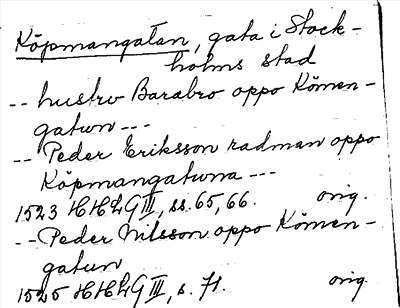 Köpmangatan, gata i Stock-
holms stad
-- hustrv Barabro oppo Kömen-
gatun ---
-- Peder Eriksson radman oppo
Köpmangatuna ---
1523 HHLG III, ss. 65, 66. orig.
-- Peder Nilsson oppo Kömen-
gatun
1525 HHLG III, s. 71. orig.